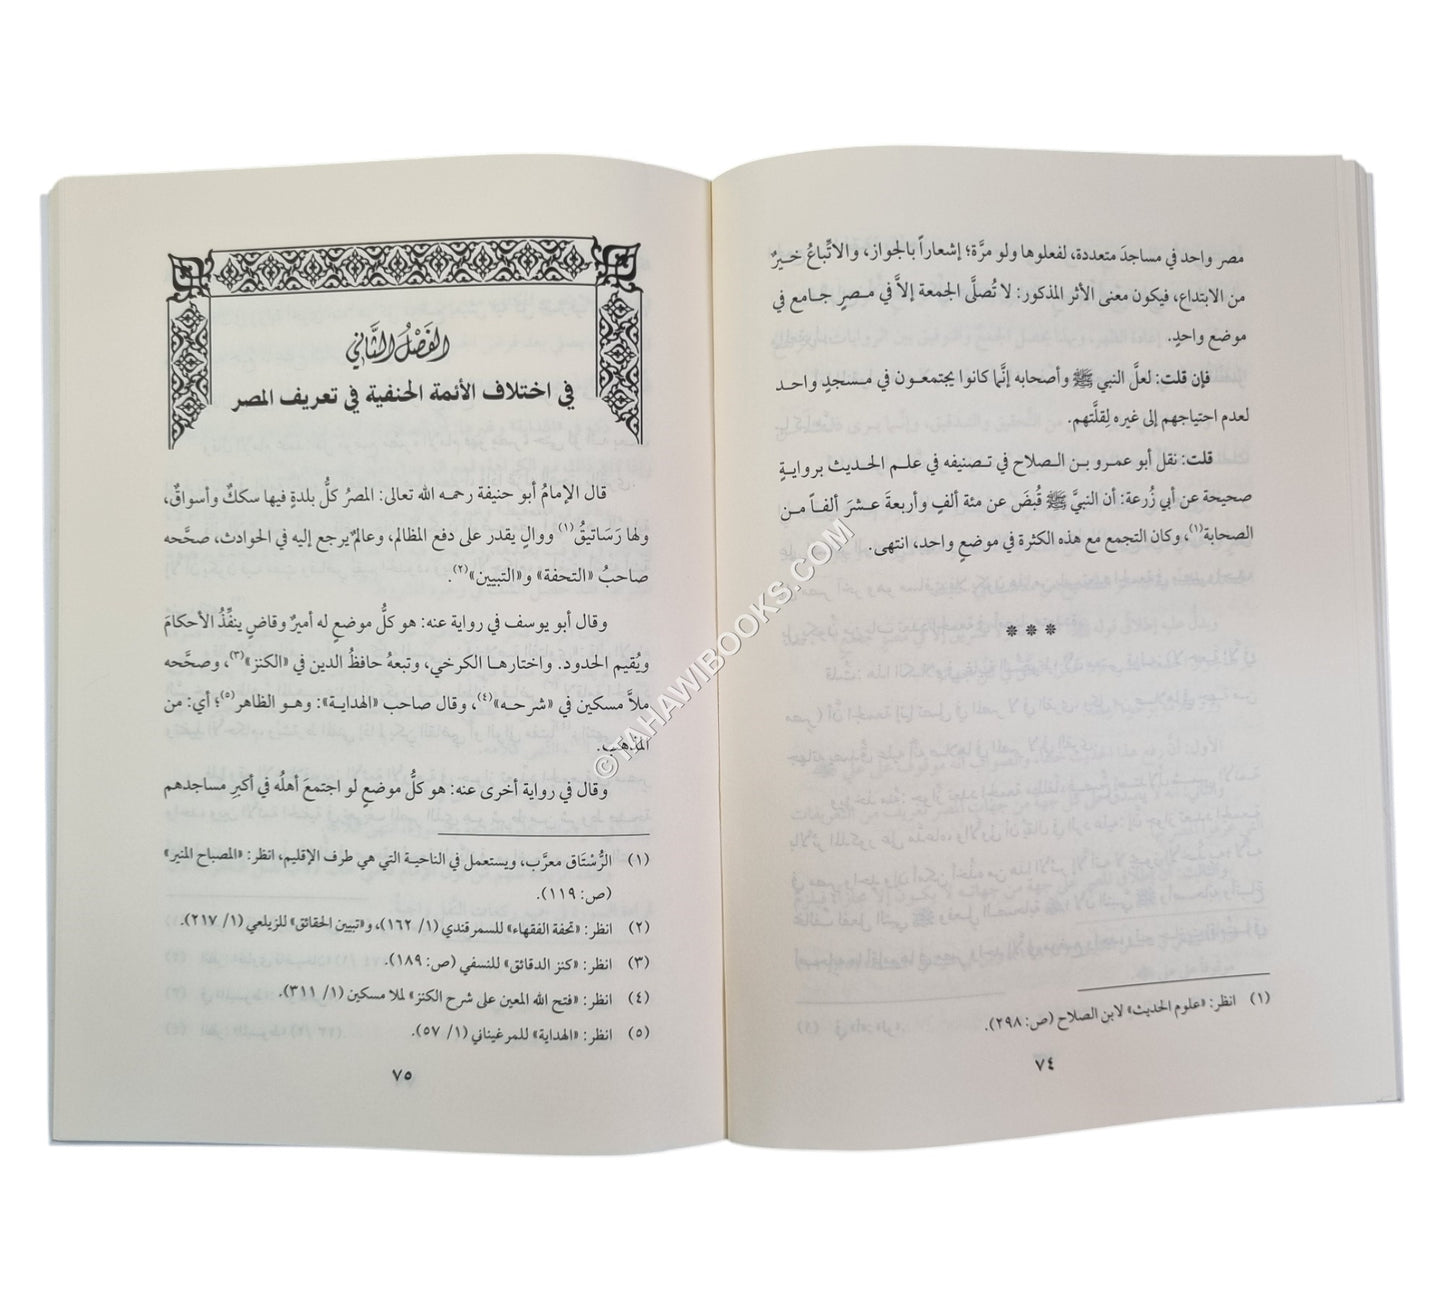 مصر واحد في مساجدَ متعددة، لفعلوها ولو مرَّة؛ إشعاراً بالجواز، والاتِّباعُ خيرٌ
من الابتداع، فيكون معنى الأثر المذكور: لا تُصلَّى الجمعة إلاَّ في مصرٍ جامع في
موضع واحدٍ.
فإن قلت: لعلَّ النبي ﷺ وأصحابه إنَّما كانوا يجتمعون في مسجدٍ واحد
لعدم احتياجهم إلى غيره لِقلَّتهم.
قلت: نقل أبو عمرو بن الصلاح في تصنيفه في علم الحديث بروايةٍ
صحيحة عن أبي زُرعة: أن النبيَّ ﷺ قُبضَ عن مئة ألفٍ وأربعةَ عشرَ ألفاً من
الصحابة(١)، وكان التجمع مع هذه الكثرة في موضعٍ واحد، انتهى.
***
(١) انظر: «علوم الحديث» لابن الصلاح (ص: ٢٩٨).
٧٤
الفَصْلُ الثَّاني
في اختلاف الأئمة الحنفية في تعريف المصر
قال الإمامُ أبو حنيفة رحمه الله تعالى: المصرُ كلُّ بلدةٍ فيها سككٌ وأسواقٌ،
ولها رَسَاتيقُ(١) ووالٍ يقدر على دفع المظالم، وعالمٌ يرجع إليه في الحوادث، صحَّحه
صاحبُ «التحفة» و«التبيين»(٢).
وقال أبو يوسف في رواية عنه: هو كلُّ موضعٍ له أميرٌ وقاضٍ ينفِّذُ الأحكامَ
ويُقيم الحدود. واختارها الكرخي، وتبعهُ حافظُ الدين في «الكنز»(٣)، وصحَّحه
ملاَّ مسكين في «شرحه»(٤)، وقال صاحب «الهداية»: وهو الظاهر(٥)؛ أي: من
المذهب.
وقال في رواية أخرى عنه: هو كلُّ موضعٍ لو اجتمعَ أهلُه في أكبرِ مساجدهم
(١) الرُّسْتَاق معرَّب، ويستعمل في الناحية التي هي طرف الإقليم، انظر: «المصباح المنير»
(ص: ١١٩).
(٢) انظر: «تحفة الفقهاء» للسمرقندي (١/ ١٦٢)، و«تبيين الحقائق» للزيلعي (١/ ٢١٧).
(٣) انظر: «كنز الدقائق» للنسفي (ص: ١٨٩).
(٤) انظر: «فتح الله المعين على شرح الكنز» لملا مسكين (١/ ٣١١).
(٥) انظر: «الهداية» للمرغيناني (١/ ٥٧).
٧٥
©TAHAWIBOOKS.COM